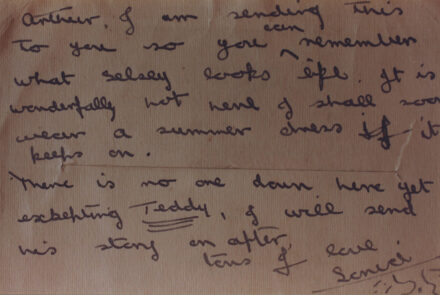 Arthur. I am sending this
To you so you can remember
what Selsey looks like. It is
wonderfully hot here I shall soon
wear a summer dress if it
keeps on.
There is no one down here yet
excepting Teddy, I will send
his story on after,
tons of love